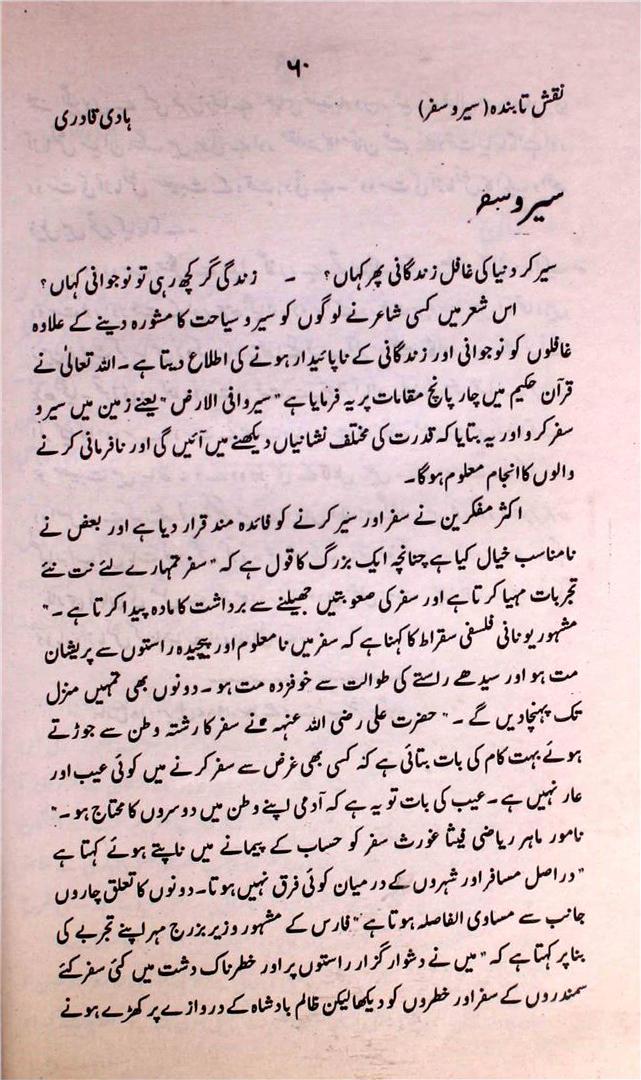 ۶۰
نقش تابندہ (سیر و سفر)
ہادی قادری
سیر و سفر
سیر کر دنیا کی غافل زندگانی پھر کہاں؟ - زندگی گر کچھ رہی تو نوجوانی کہاں؟
اس شعر میں کسی شاعر نے لوگوں کو سیر و سیاحت کا مشورہ دینے کے علاوہ
غافلوں کو نوجوانی اور زندگانی کے ناپائیدار ہونے کی اطلاع دیتا ہے۔ اللہ تعالیٰ نے
قرآن حکیم میں چار پانچ مقامات پر یہ فرمایا ہے "سیروافی الارض" یعنے زمین میں سیر و
سفر کرو اور یہ بتایا کہ قدرت کی مختلف نشانیاں دیکھنے میں آئیں گی اور نافرمانی کرنے
والوں کا انجام معلوم ہوگا۔
اکثر مفکرین نے سفر اور سیر کرنے کو فائدہ مند قرار دیا ہے اور بعض نے
نامناسب خیال کیا ہے چنانچہ ایک بزرگ کا قول ہے کہ "سفر تمہارے لئے نت نئے
تجربات مہیا کرتا ہے اور سفر کی صعوبتیں جھیلنے سے برداشت کا مادہ پیدا کرتا ہے۔"
مشہور یونانی فلسفی سقراط کا کہنا ہے کہ سفر میں نامعلوم اور پیچیدہ راستوں سے پریشان
مت ہو اور سیدھے راستے کی طوالت سے خوفزدہ مت ہو۔ دونوں بھی تمہیں منزل
تک پہنچادیں گے۔" حضرت علی رضی اللہ عنہہ نے سفر کا رشتہ وطن سے جوڑتے
ہوئے بہت کام کی بات بتائی ہے کہ کسی بھی غرض سے سفر کرنے میں کوئی عیب اور
عار نہیں ہے۔ عیب کی بات تو یہ ہے کہ آدمی اپنے وطن میں دوسروں کا محتاج ہو۔"
نامور ماہر ریاضی فیثا غورث سفر کو حساب کے پیمانے میں ناپتے ہوئے کہتا ہے
"دراصل مسافر اور شہروں کے درمیان کوئی فرق نہیں ہوتا۔ دونوں کا تعلق چاروں
جانب سے مساوی الفاصلہ ہوتا ہے" فارس کے مشہور وزیر بزرج مہر اپنے تجربے کی
بنا پر کہتا ہے کہ "میں نے دشوار گزار راستوں پر اور خطرناک دشت میں کئی سفر کئے
سمندروں کے سفر اور خطروں کو دیکھا لیکن ظالم بادشاہ کے دروازے پر کھڑے ہونے